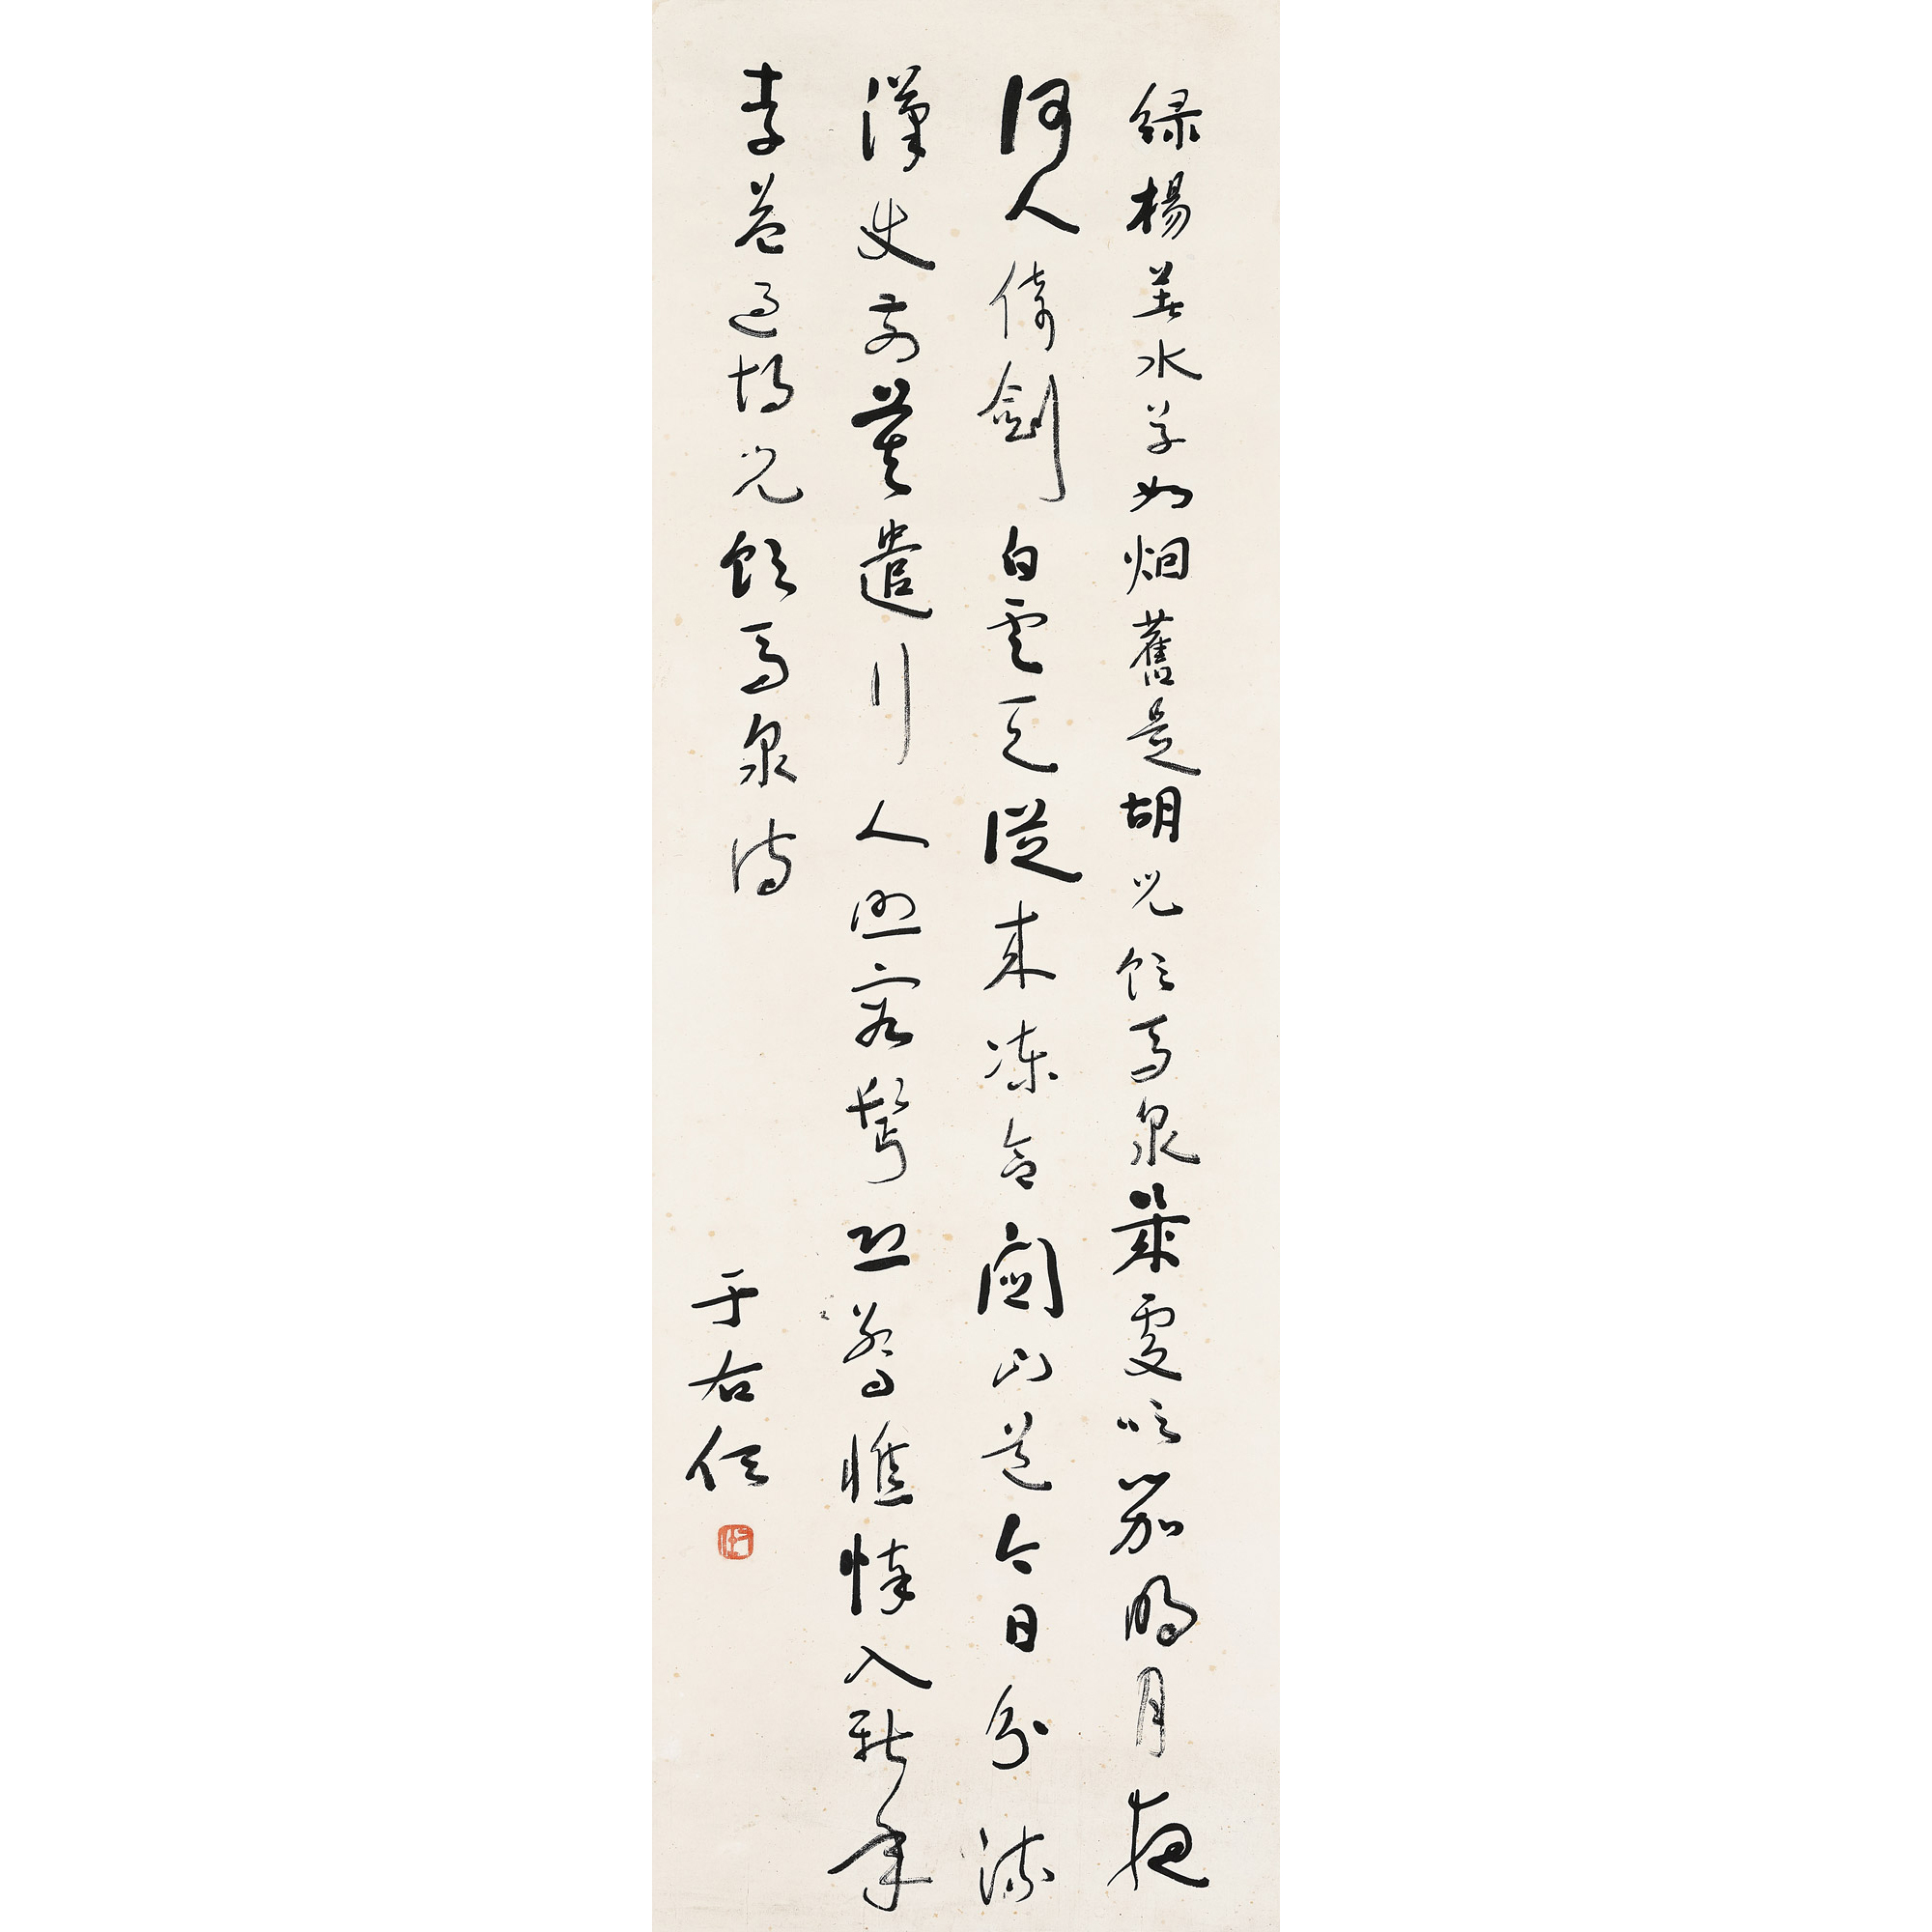 綠楊著水草如烟舊是胡兒飲馬泉幾處吹笳明月夜
何人倚劍白雲天從來凍合關山道今日分流
漢使前莫遣行人照容鬢恐驚憔悴入新年
李益過胡兒飲馬泉詩
于右任
右任